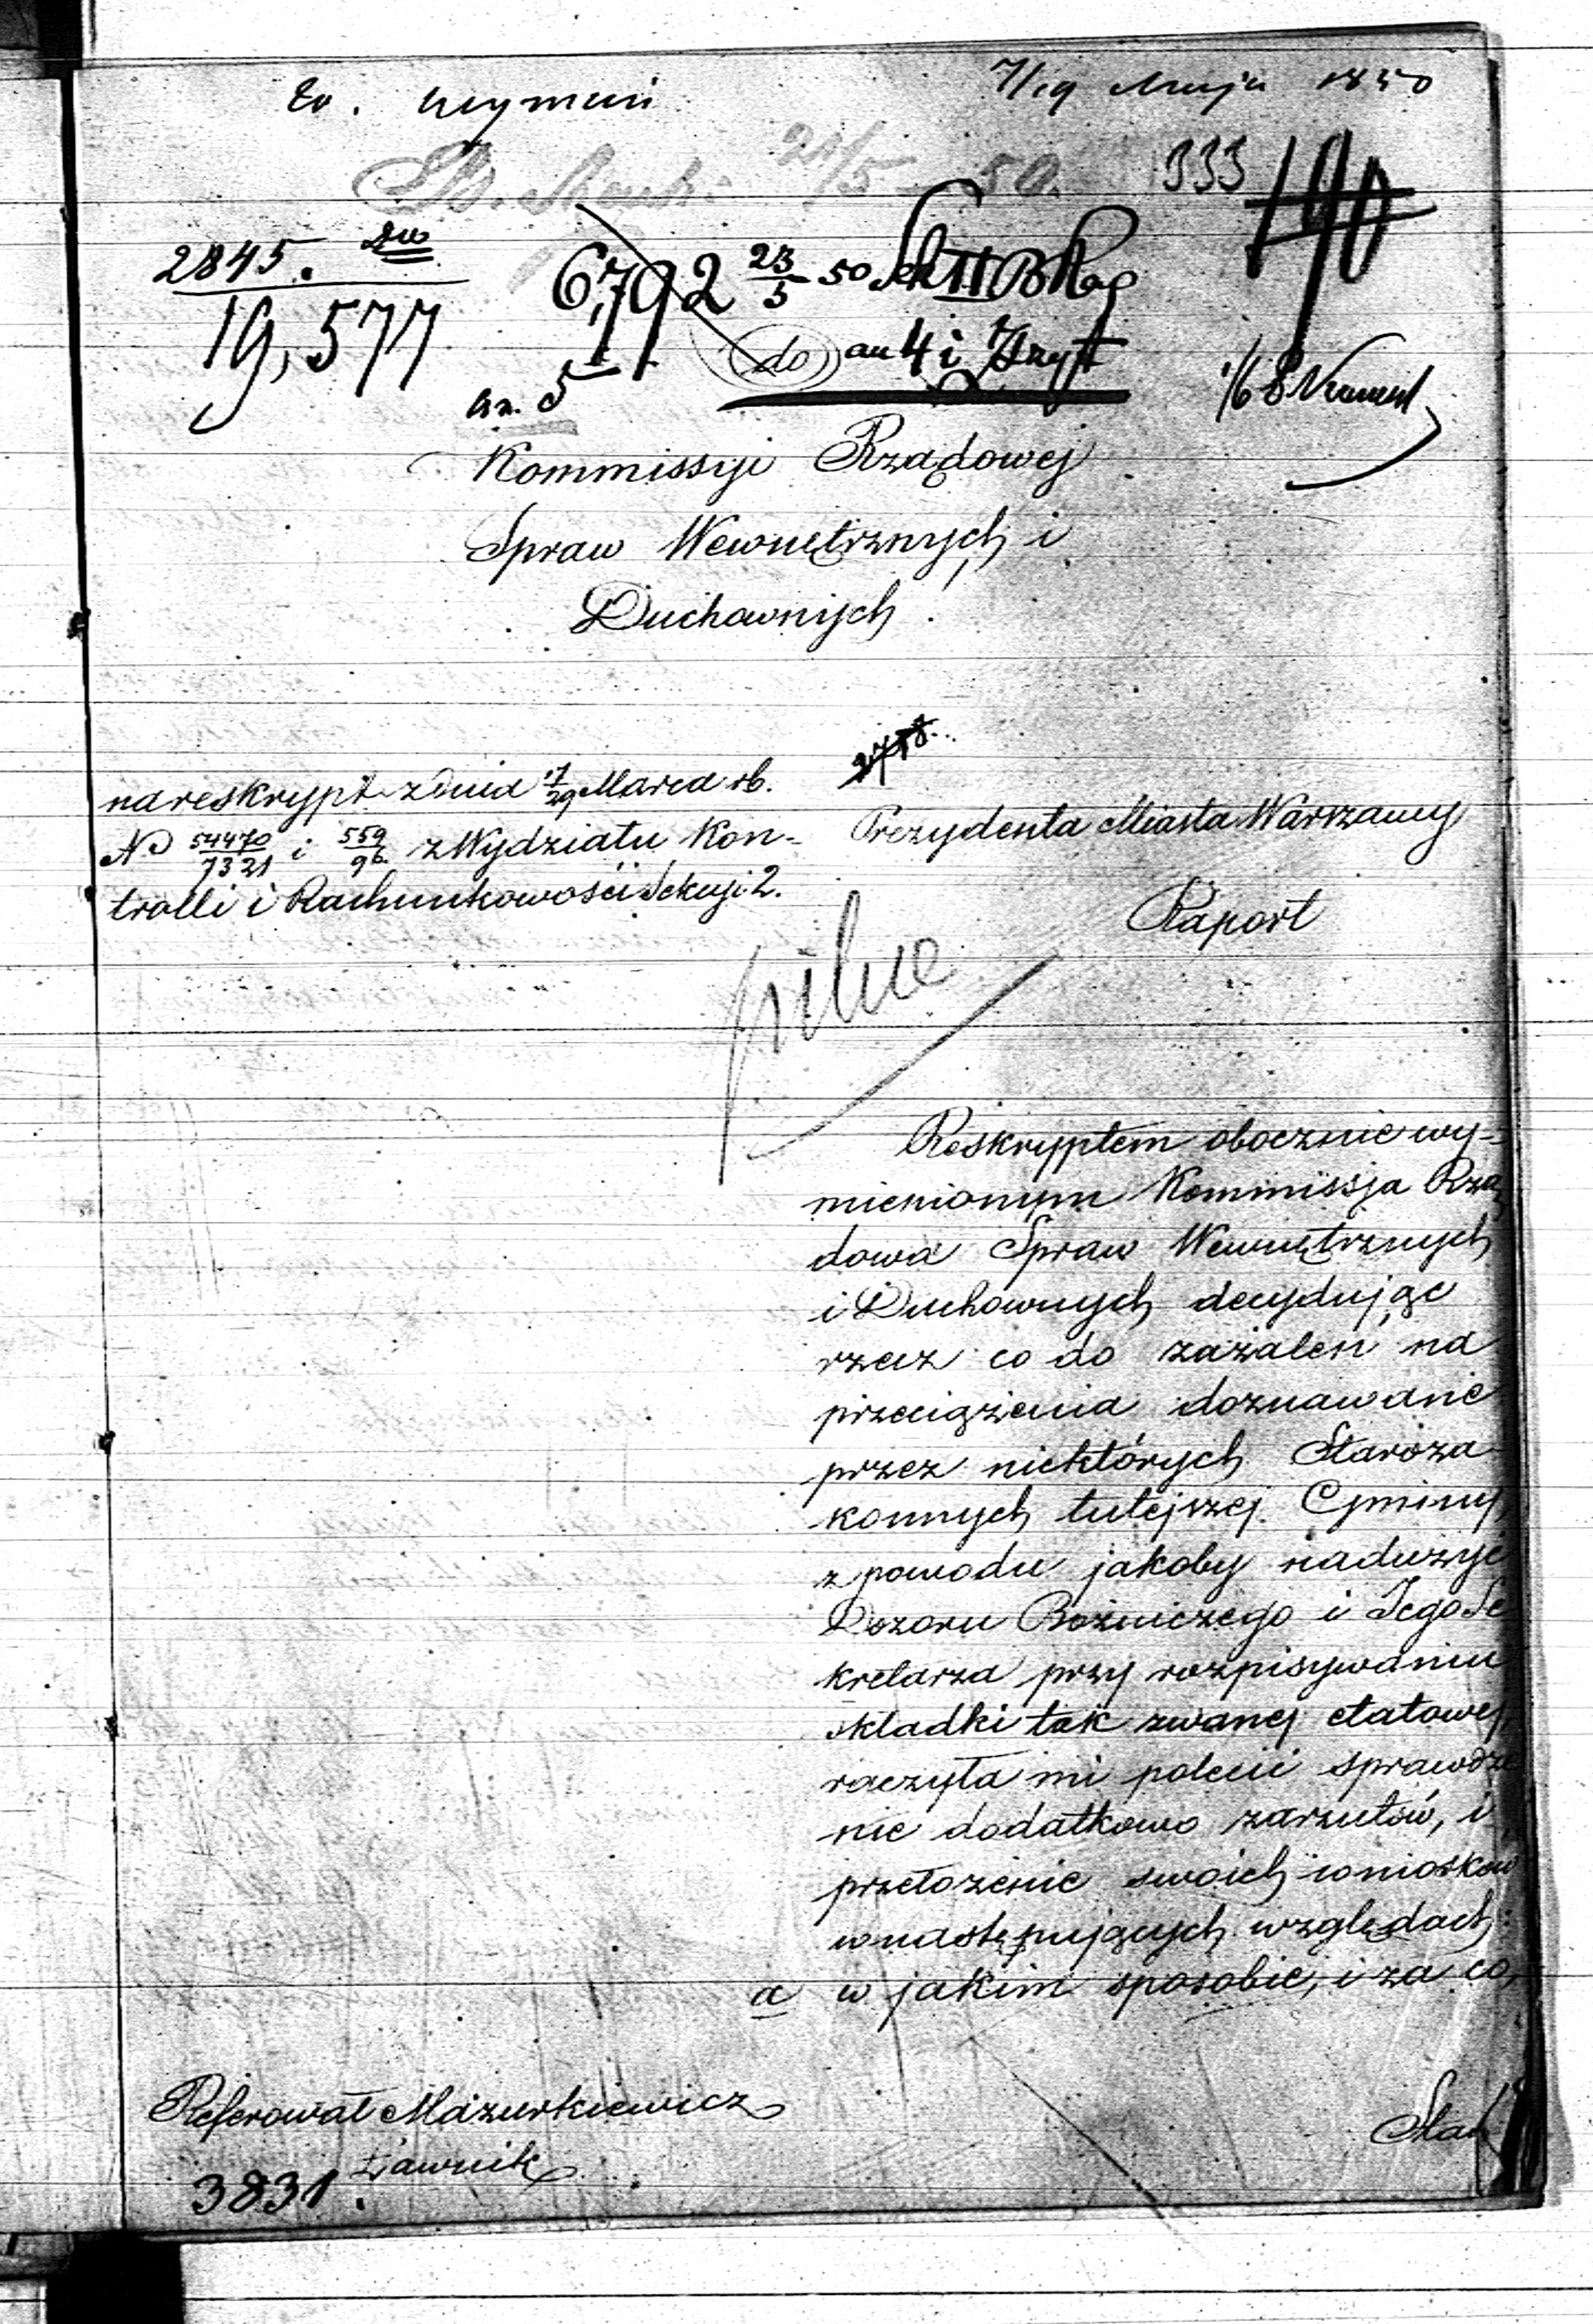 7/19 Maja 1850
21/5 50.
333
190
2845.
19,577
6,792 23/5 50 Sek II
do an 4 i
an. 5
Kommissyi Rządowej
Spraw Wewnętrznych i
Duchownych.
na reskrypt z dnia 17/29 Marca rb.
No 54470/7321 i 559/96 z Wydziału Kon-
trolli i Rachunkowości Sekcyi 2.
Prezydenta Miasta Warszawy
Raport
pilne
Reskryptem obocznie wy-
mienionym Kommissja Rzą
dowa Spraw Wewnętrznych
i Duchownych decydując
rzecz co do zażaleń na
przeciążenia doznawane
przez niektórych Staroza-
konnych tutejszej Gminy
z powodu jakoby nadużyć
Dozoru Bożniczego i Jego Se
kretarza przy rozpisywaniu
składki tak zwanej etatowej,
raczyła mi polecić sprawdze
nie dodatkowo zarzutów, i
przełożenie swoich wniosków
w następujących względach:
a w jakim sposobie, i za co,
Referował Mazurkiewicz
Ławnik
3831.